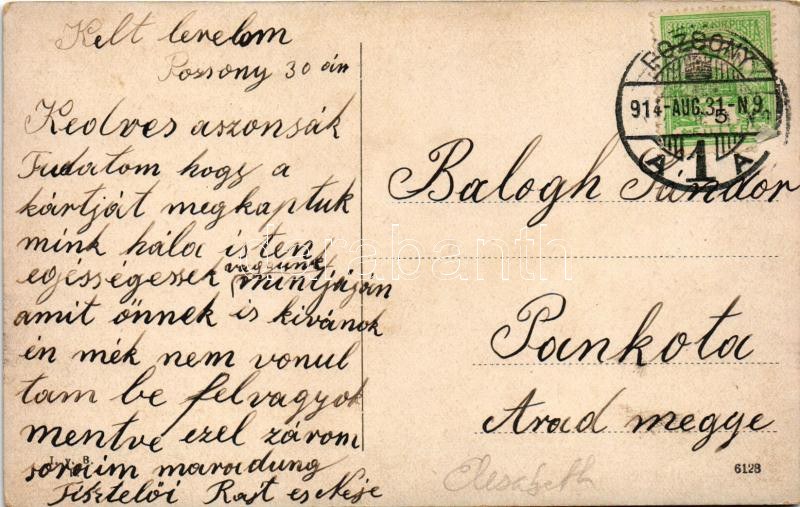 Kelt levelom
Pozsony 30 án
Kedves aszonsák
Tudatom hogy a
kártját megkaptuk
mink hála isten
egésségessek vagyunk mintjáján
amit önnek is kivánok
én mék nem vonul
tam be felvagyok
mentve ezel zárom
soraim maradung
Tisztelői Rajt es Neje
MAGYAR KIR. POSTA
POZSONY
914-AUG.31-N.9
5
A 1 A
Balogh Sándor
Pankota
Arad megye
darabanth
Elesabeth
6128